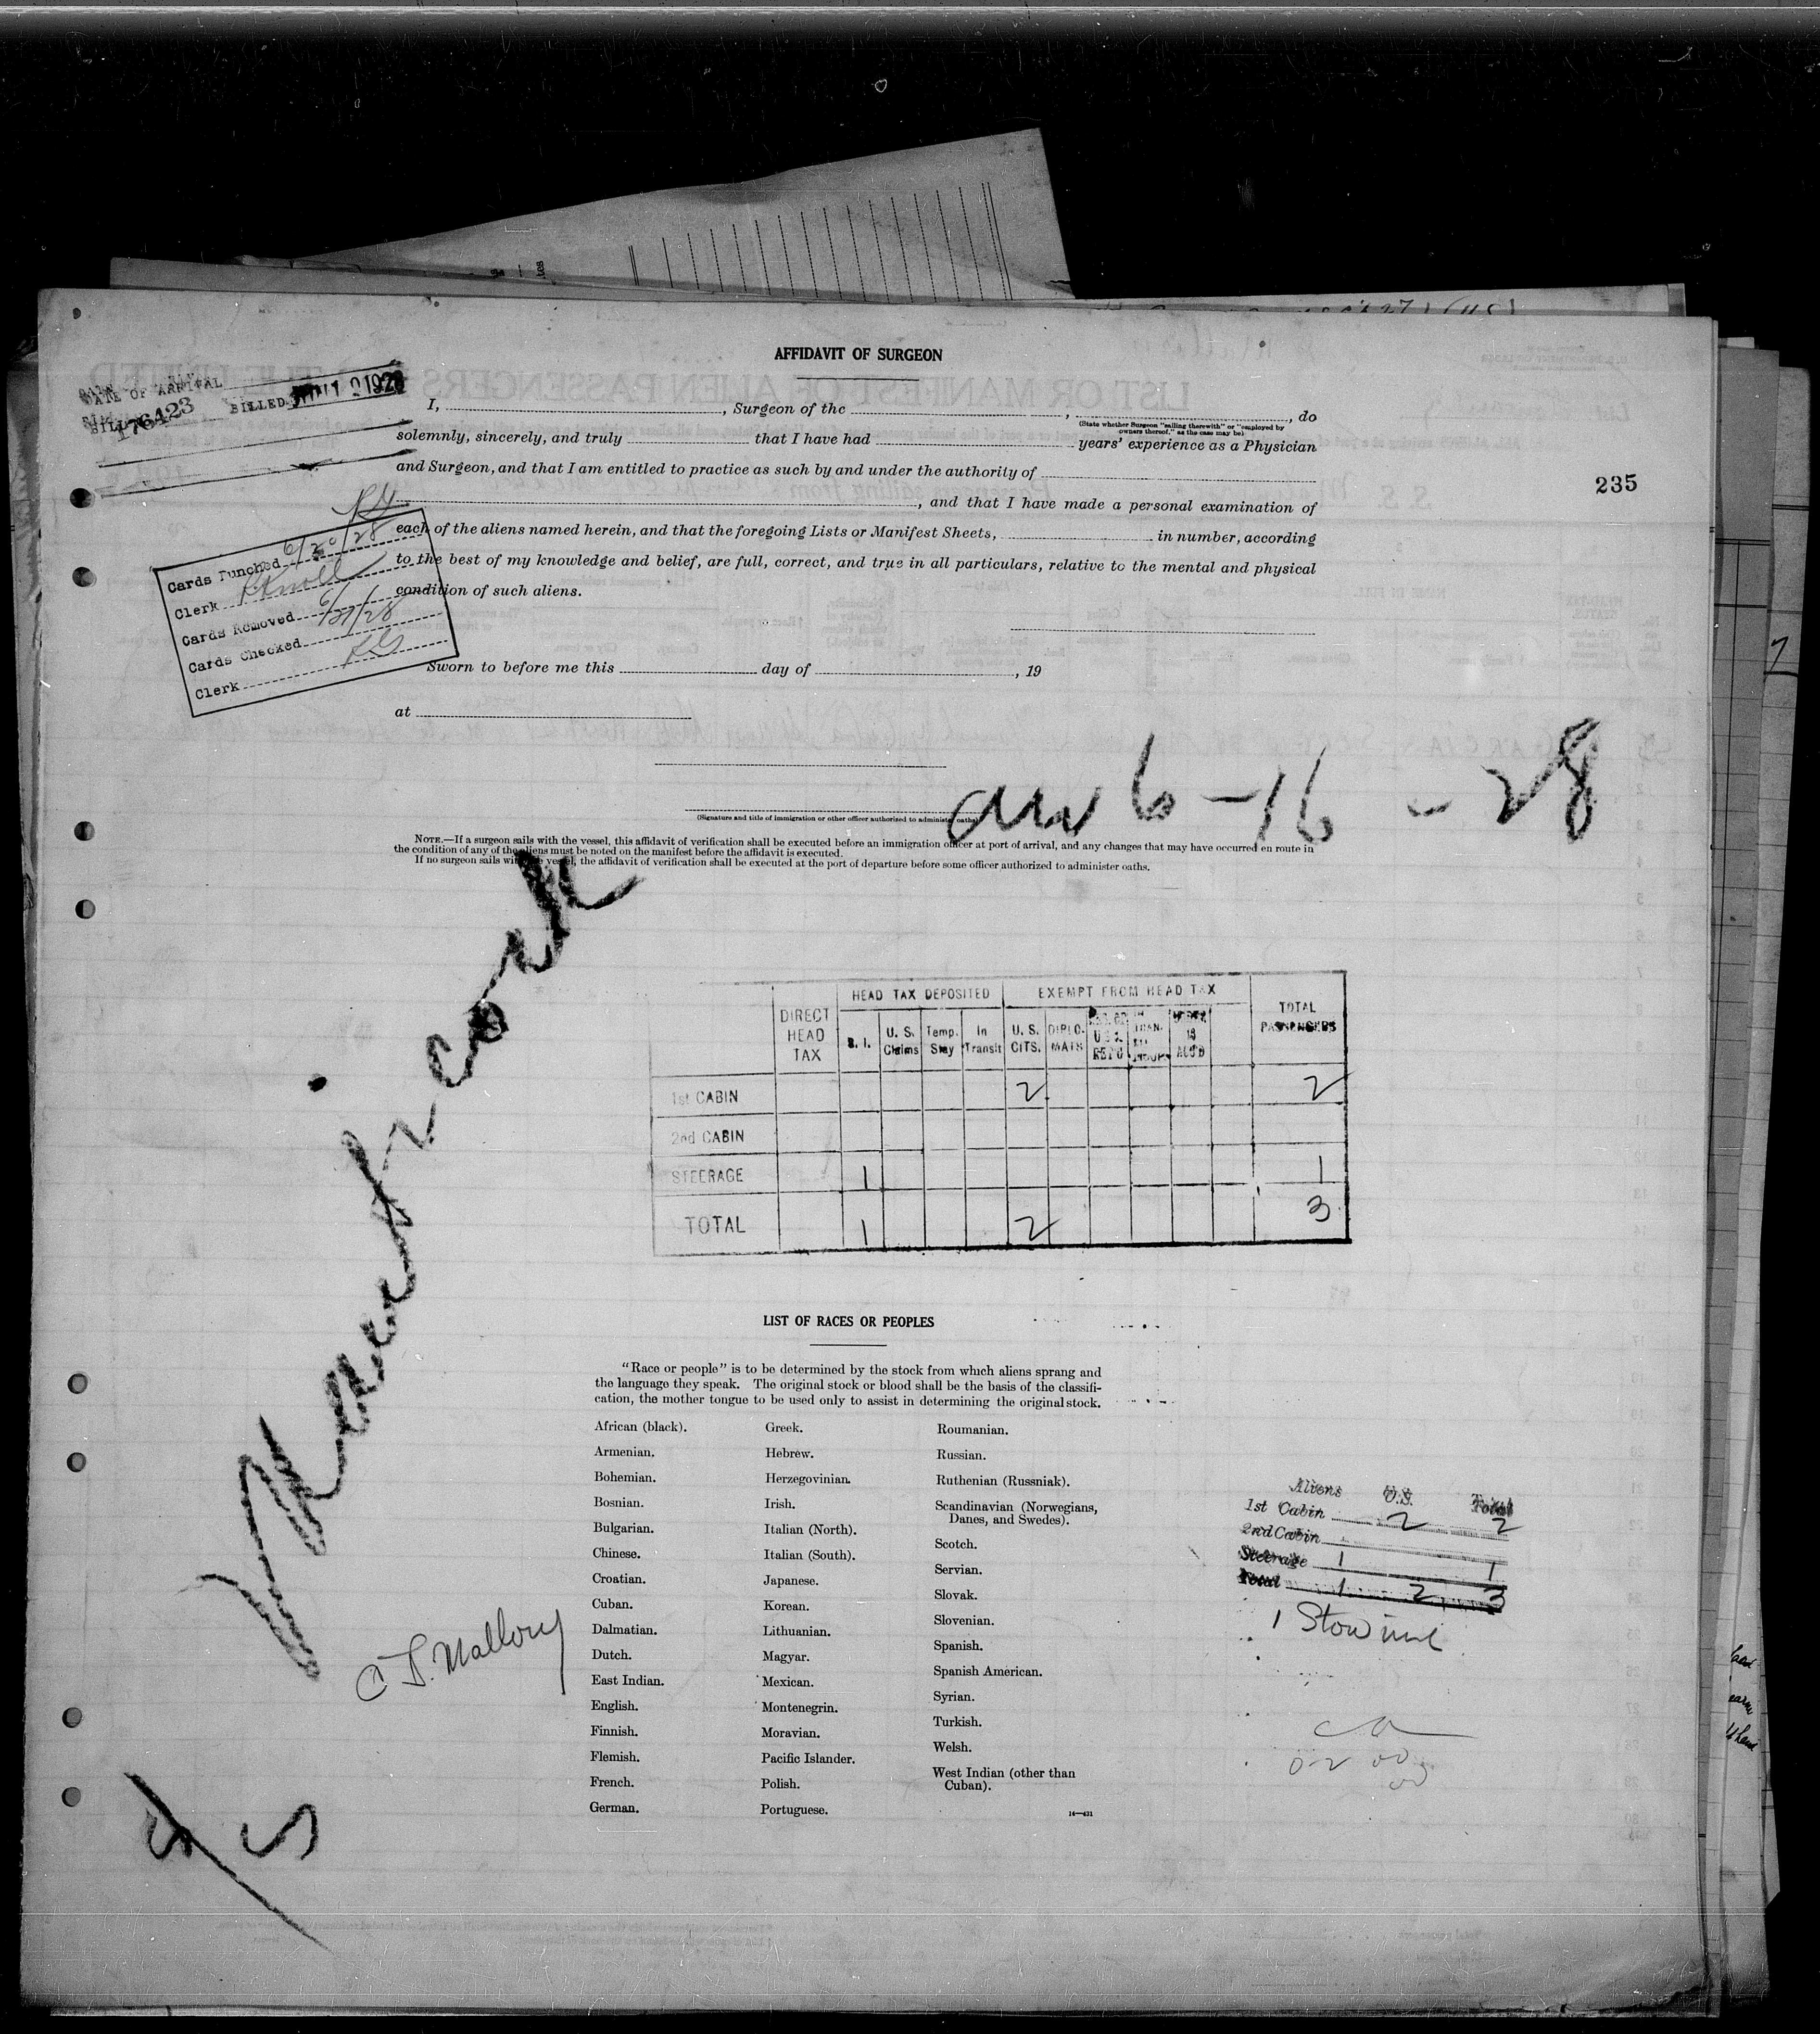 AFFIDAVIT OF SURGEON
DATE OF ARRIVAL
BILL 176423 BILLED JUN 19 1928
I, , Surgeon of the , , do
(State whether Surgeon "sailing therewith" or "employed by
owners thereof," as the case may be)
solemnly, sincerely, and truly that I have had years' experience as a Physician
and Surgeon, and that I am entitled to practice as such by and under the authority of
, and that I have made a personal examination of
235
each of the aliens named herein, and that the foregoing Lists or Manifest Sheets, in number, according
to the best of my knowledge and belief, are full, correct, and true in all particulars, relative to the mental and physical
condition of such aliens.
Cards Punched 6/20/28
Clerk
Cards Removed 6/21/28
Cards Checked
Clerk
Sworn to before me this day of , 19
at
(Signature and title of immigration or other officer authorized to administer oaths)
arr 6-16-28
NOTE.—If a surgeon sails with the vessel, this affidavit of verification shall be executed before an immigration officer at port of arrival, and any changes that may have occurred en route in
the condition of any of the aliens must be noted on the manifest before the affidavit is executed.
If no surgeon sails with the vessel, the affidavit of verification shall be executed at the port of departure before some officer authorized to administer oaths.
HEAD TAX DEPOSITED EXEMPT FROM HEAD TAX
DIRECT HEAD TAX S. I. U. S. Claims Temp. Stay In Transit U. S. CITS. DIPLO- MATS TOTAL PASSENGERS
1st CABIN 2 2
2nd CABIN
STEERAGE 1 1
TOTAL 1 2 3
LIST OF RACES OR PEOPLES
"Race or people" is to be determined by the stock from which aliens sprang and
the language they speak. The original stock or blood shall be the basis of the classifi-
cation, the mother tongue to be used only to assist in determining the original stock.
African (black).
Armenian.
Bohemian.
Bosnian.
Bulgarian.
Chinese.
Croatian.
Cuban.
Dalmatian.
Dutch.
East Indian.
English.
Finnish.
Flemish.
French.
German.
Greek.
Hebrew.
Herzegovinian.
Irish.
Italian (North).
Italian (South).
Japanese.
Korean.
Lithuanian.
Magyar.
Mexican.
Montenegrin.
Moravian.
Pacific Islander.
Polish.
Portuguese.
Roumanian.
Russian.
Ruthenian (Russniak).
Scandinavian (Norwegians,
Danes, and Swedes).
Scotch.
Servian.
Slovak.
Slovenian.
Spanish.
Spanish American.
Syrian.
Turkish.
Welsh.
West Indian (other than
Cuban).
14—431
Aliens U.S. Total
1st Cabin 2 2
2nd Cabin
Steerage 1 1
Total 1 2 3
C. D. Mallory